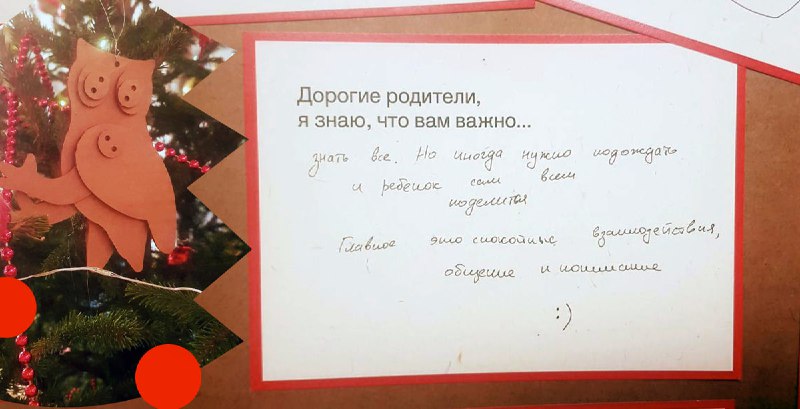 Дорогие родители,
я знаю, что вам важно...
знать все. Но иногда нужно подождать
и ребенок сам всем
поделится
Главное это спокойные взаимодействия,
общение и понимание
:)